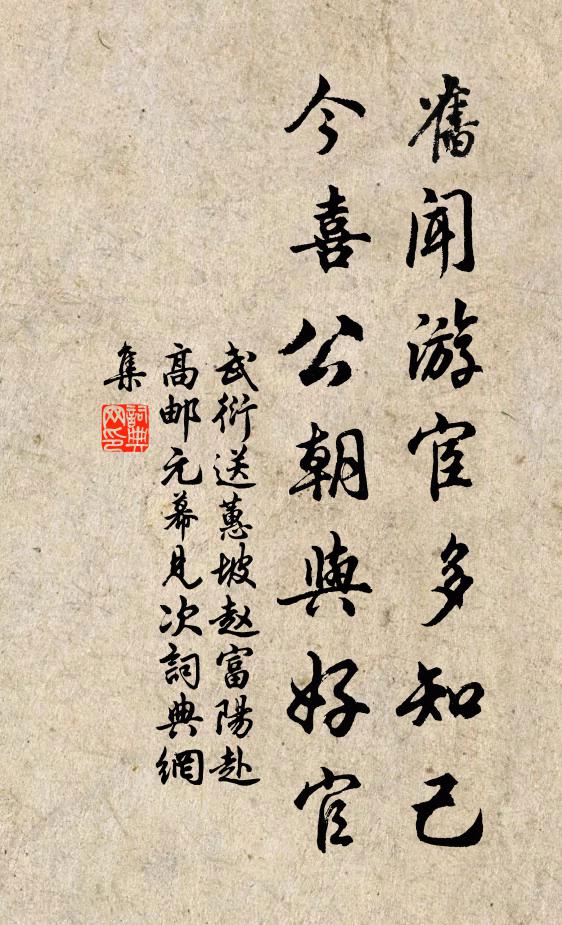 舊闻游宦多知己
今喜公朝與好官
武衍送蕙坡赵富陽赴
高邮元幕見次詞典網
集
詞典網印